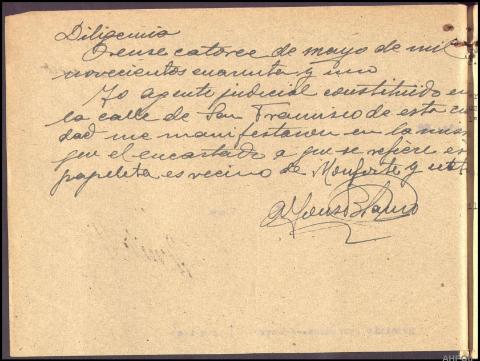 Diligencia
Orense catorce de mayo de mil
novecientos cuarenta y uno
Yo agente judicial constituido en
la calle de San Francisco de esta ciu
dad me manifestaron en la misma
que el encartado a que se refiere es
papeleta es vecino de Monforte y
Alfonso Blanco